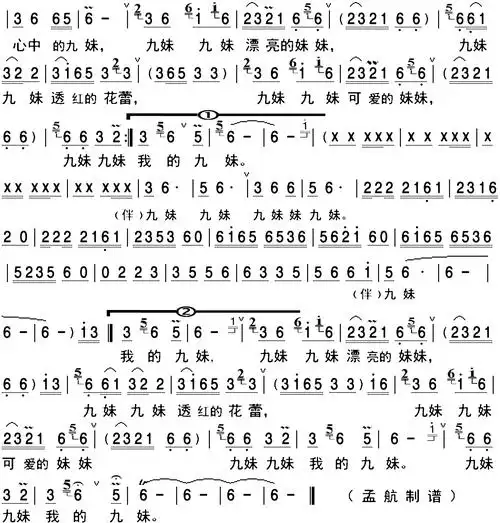 | 3 6 65 | 6 - ∨ | 3 6 6·i | 2321 6 6 | (2321 6 6) | 6 61 |
心中 的九 妹， 九妹 九妹 漂亮的妹妹， 九妹
3 2 2 | 3165 323 ∨ | (365 3 3) | 3 6 6·i | 2321 6 6 ∨ | (2321
九 妹 透 红的 花蕾， 九妹 九妹 可 爱的 妹妹，
①
6 6) | 6 6 3 2 :‖ 3 6 5 | 6 - | 6 - i | (x x x x x x |
九妹 九妹 我 的 九 妹。
xx xxx | xx xxx | 3 6· | 5 6· ∨ | 3 6 6 | 5 6· | 222 2161 | 2316
（伴）九妹 九妹 九妹妹 九妹。
2 0 | 222 2161 | 2353 60 | 6165 6536 | 5621 60 | 6165 6536
| 5235 6 0 | 0 2 2 3 | 3 5 5 6 | 6 3 3 5 | 5 6 6 i | 5 6· | 6 - |
（伴）九妹
②
6 - | 6 - ) i3 ‖ 3 6 5 | 6 - i | 3 6 6·i | 2321 6 6 ∨ | (2321
我 的 九妹， 九妹 九妹 漂亮的 妹妹，
6 6) i3 | 6 61 3 2 2 | 3165 323 ∨ | (3165 33) i6 | 3 6 6·i |
九妹 九妹 透 红的 花蕾， 九妹 九妹
2321 6 6 ∨ | (2321 6 6) | 6 6 3 2 | 3 6 5 | 6 - i | 6 6
可 爱的 妹妹 九妹 九妹 我 的 九妹。 九妹
3 2 | 3 6 ∨ | 6 5 | 6 - | 6 - | 6 - | 6 - ‖ （孟航制谱）
九妹 我 的 九 妹。